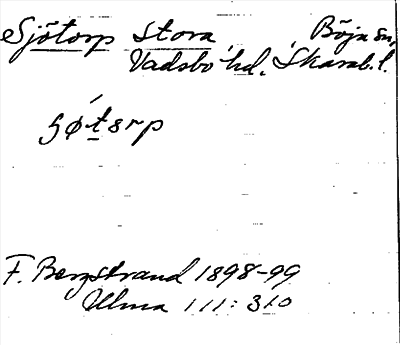 Sjötorp Stora Böja sn,
Vadsbo hd. Skarab. l.
F. Bergstrand 1898-99
Ulma 111:310